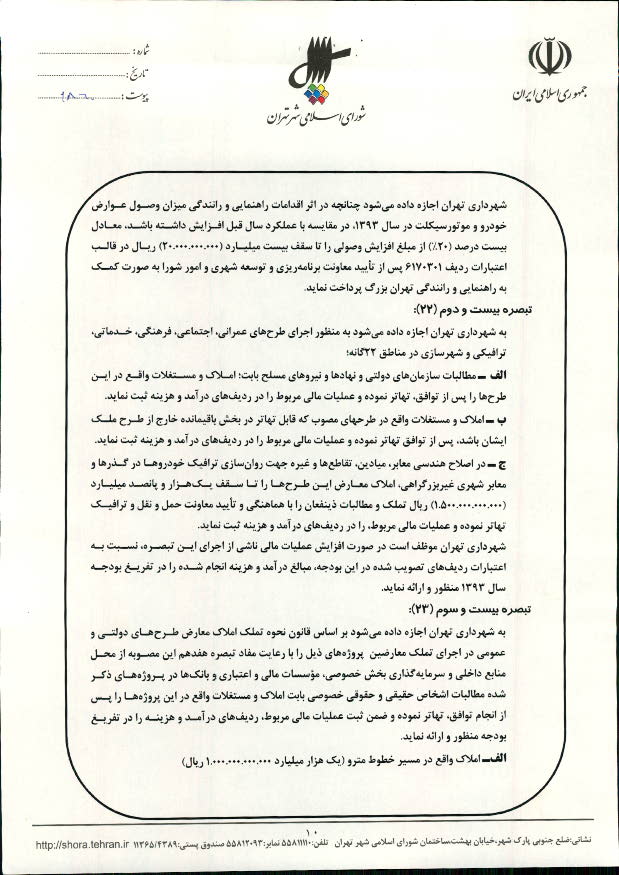 جمهوری اسلامی ایران
شورای اسلامی شهر تهران
شماره :
تاریخ :
پیوست :
شهرداری تهران اجازه داده می‌شود چنانچه در اثر اقدامات راهنمایی و رانندگی میزان وصول عوارض
خودرو و موتورسیکلت در سال ۱۳۹۳، در مقایسه با عملکرد سال قبل افزایش داشته باشد، معادل
بیست درصد (۲۰٪) از مبلغ افزایش وصولی را تا سقف بیست میلیارد (۲۰.۰۰۰.۰۰۰.۰۰۰) ریال در قالب
اعتبارات ردیف ۶۱۷۰۳۰۱ پس از تأیید معاونت برنامه‌ریزی و توسعه شهری و امور شورا به صورت کمک
به راهنمایی و رانندگی تهران بزرگ پرداخت نماید.
تبصره بیست و دوم (۲۲):
به شهرداری تهران اجازه داده می‌شود به منظور اجرای طرح‌های عمرانی، اجتماعی، فرهنگی، خدماتی،
ترافیکی و شهرسازی در مناطق ۲۲گانه؛
الف ـ مطالبات سازمان‌های دولتی و نهادها و نیروهای مسلح بابت؛ املاک و مستغلات واقع در این
طرح‌ها را پس از توافق، تهاتر نموده و عملیات مالی مربوط را در ردیف‌های درآمد و هزینه ثبت نماید.
ب ـ املاک و مستغلات واقع در طرحهای مصوب که قابل تهاتر در بخش باقیمانده خارج از طرح ملک
ایشان باشد، پس از توافق تهاتر نموده و عملیات مالی مربوط را در ردیف‌های درآمد و هزینه ثبت نماید.
ج ـ در اصلاح هندسی معابر، میادین، تقاطع‌ها و غیره جهت روان‌سازی ترافیک خودروها در گذرها و
معابر شهری غیربزرگراهی، املاک معارض این طرح‌ها را تا سقف یک‌هزار و پانصد میلیارد
(۱.۵۰۰.۰۰۰.۰۰۰.۰۰۰) ریال تملک و مطالبات ذینفعان را با هماهنگی و تأیید معاونت حمل و نقل و ترافیک
تهاتر نموده و عملیات مالی مربوط، را در ردیف‌های درآمد و هزینه ثبت نماید.
شهرداری تهران موظف است در صورت افزایش عملیات مالی ناشی از اجرای این تبصره، نسبت به
اعتبارات ردیف‌های تصویب شده در این بودجه، مبالغ درآمد و هزینه انجام شده را در تفریغ بودجه
سال ۱۳۹۳ منظور و ارائه نماید.
تبصره بیست و سوم (۲۳):
به شهرداری تهران اجازه داده می‌شود بر اساس قانون نحوه تملک املاک معارض طرح‌های دولتی و
عمومی در اجرای تملک معارضین پروژه‌های ذیل را با رعایت مفاد تبصره هفدهم این مصوبه از محل
منابع داخلی و سرمایه‌گذاری بخش خصوصی، مؤسسات مالی و اعتباری و بانک‌ها در پروژه‌های ذکر
شده مطالبات اشخاص حقیقی و حقوقی خصوصی بابت املاک و مستغلات واقع در این پروژه‌ها را پس
از انجام توافق، تهاتر نموده و ضمن ثبت عملیات مالی مربوط، ردیف‌های درآمد و هزینه را در تفریغ
بودجه منظور و ارائه نماید.
الف‌ـ املاک واقع در مسیر خطوط مترو (یک هزار میلیارد ۱.۰۰۰.۰۰۰.۰۰۰.۰۰۰ ریال)
۱۰
نشانی:ضلع جنوبی پارک شهر،خیابان بهشت،ساختمان شورای اسلامی شهر تهران تلفن:۵۵۸۱۱۱۱۰ نمابر:۵۵۸۱۲۰۹۳ صندوق پستی:۱۱۳۶۵/۴۳۸۹ http://shora.tehran.ir